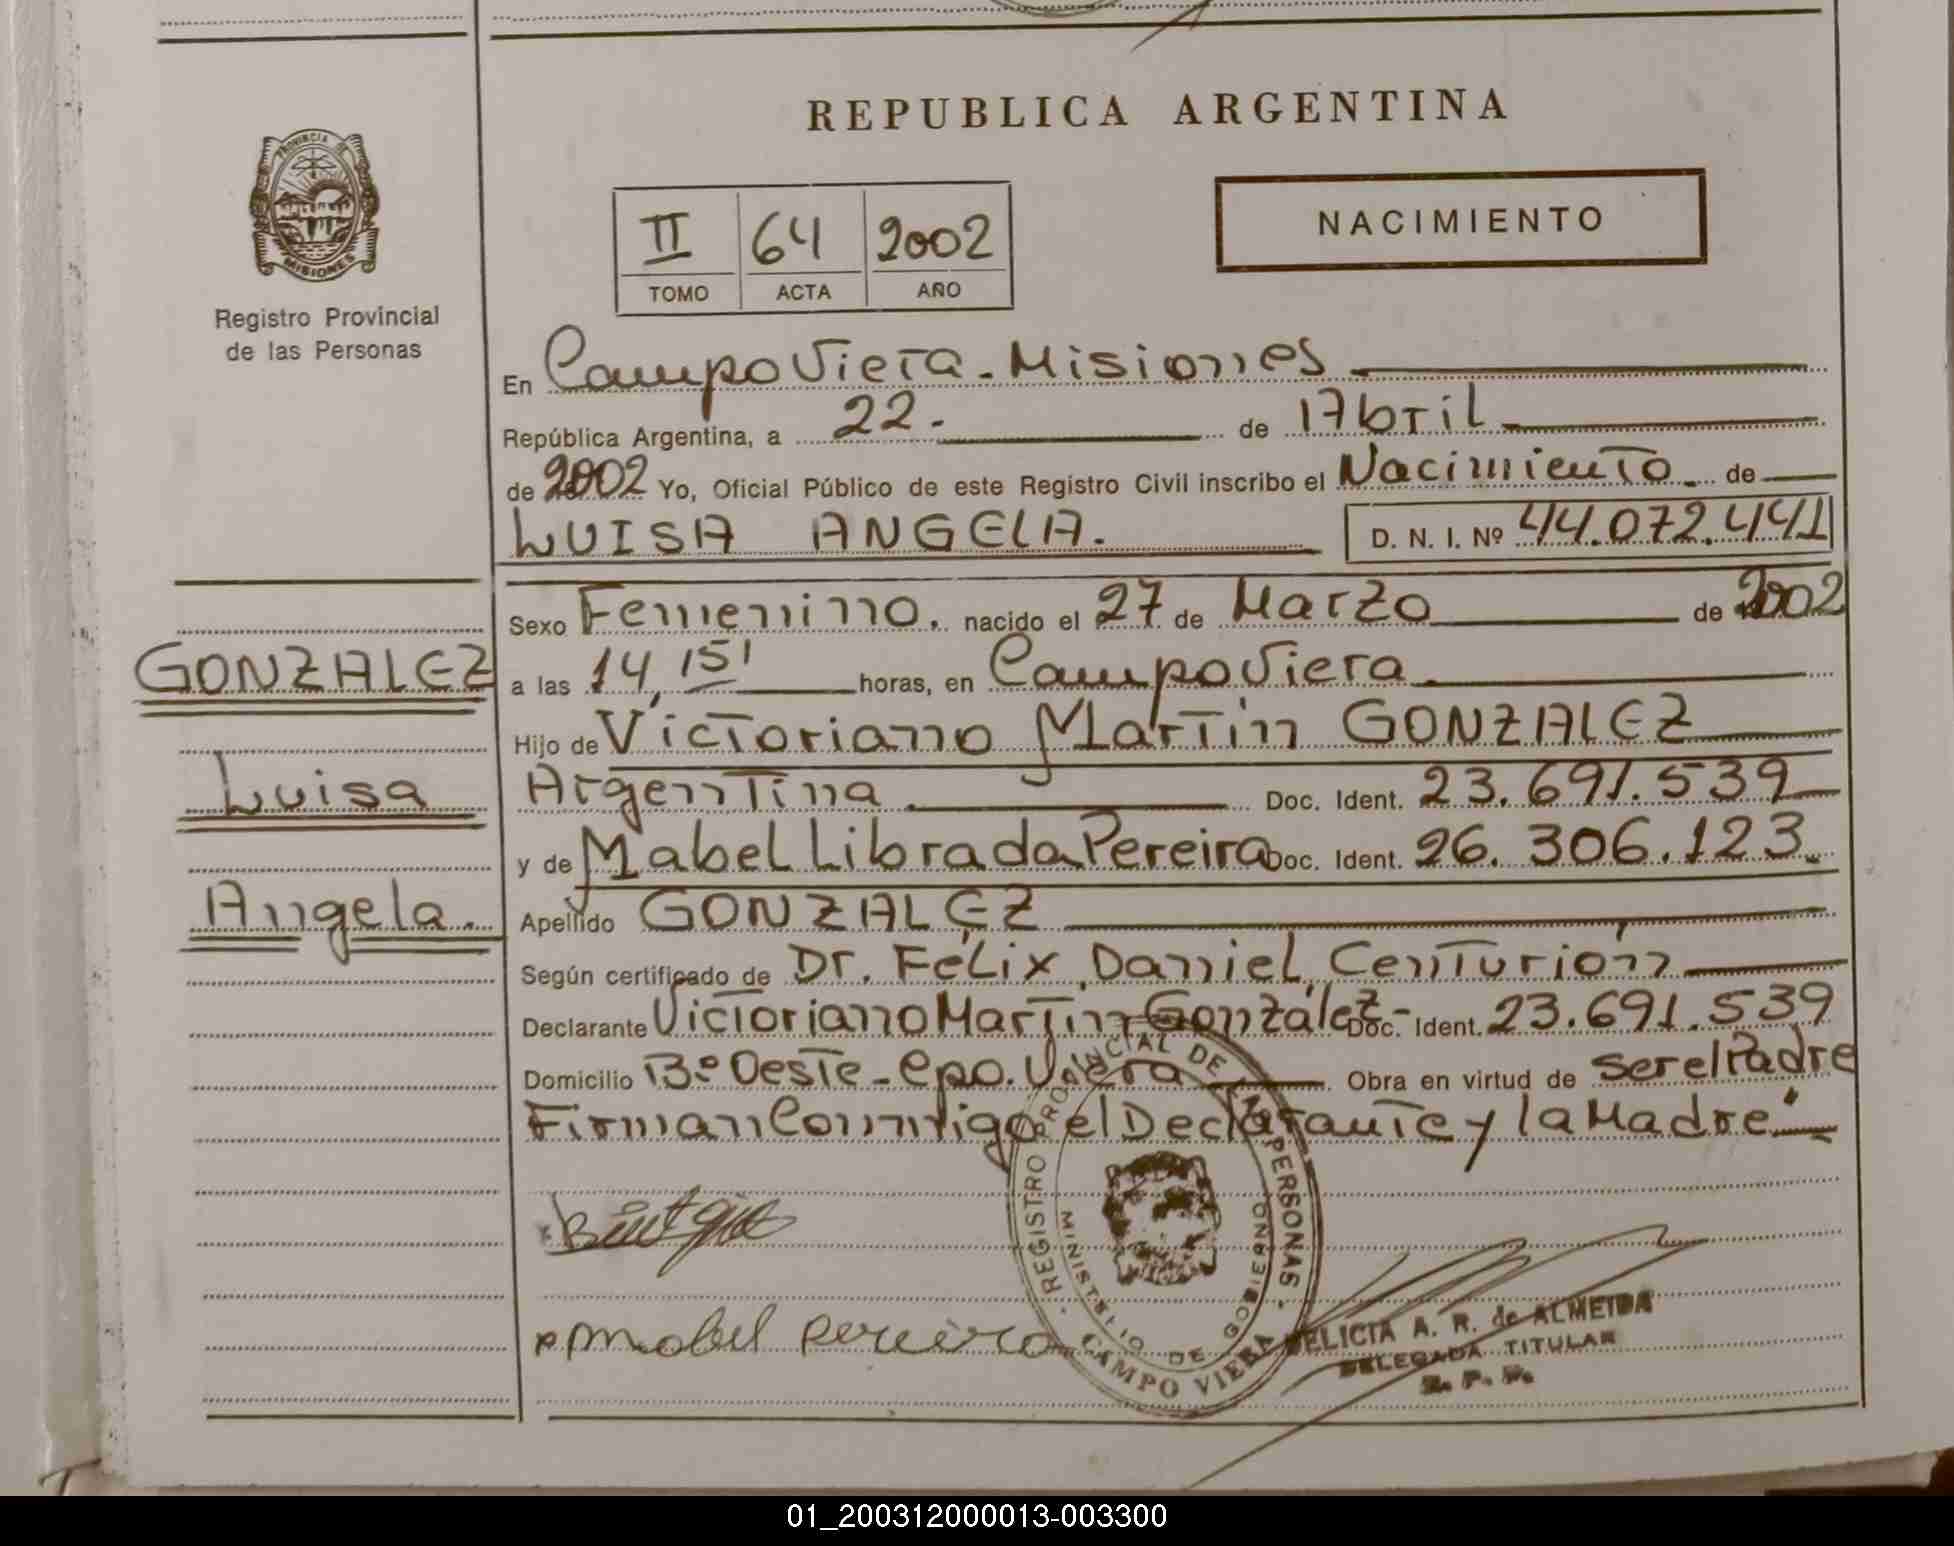 REPUBLICA ARGENTINA
PROVINCIA DE
MISIONES
Registro Provincial
de las Personas
II 64 2002
TOMO ACTA AÑO
NACIMIENTO
En Campo Viera - Misiones
República Argentina, a 22.- de Abril
de 2002 Yo, Oficial Público de este Registro Civil inscribo el Nacimiento de
LUISA ANGELA. D. N. I. Nº 44.072.441
Sexo Femenino. nacido el 27 de Marzo de 2002
GONZALEZ
a las 14,15' horas, en Campo Viera.
Hijo de Victoriano Martin GONZALEZ
Luisa
Argentina Doc. Ident. 23.691.539
y de Mabel Librada Pereira Doc. Ident. 26.306.123.
Angela.
Apellido GONZALEZ
Según certificado de Dr. Félix Daniel Centurión
Declarante Victoriano Martin González- Doc. Ident. 23.691.539
Domicilio Bº Oeste - Cpo. Viera Obra en virtud de ser el Padre
Firman Conmigo el Declarante y la Madre"
REGISTRO PROVINCIAL DE LAS PERSONAS
MINISTERIO DE GOBIERNO
CAMPO VIERA
Mabel Pereira
DELICIA A. R. de ALMEIDA
DELEGADA TITULAR
R. P. P.
01_200312000013-003300